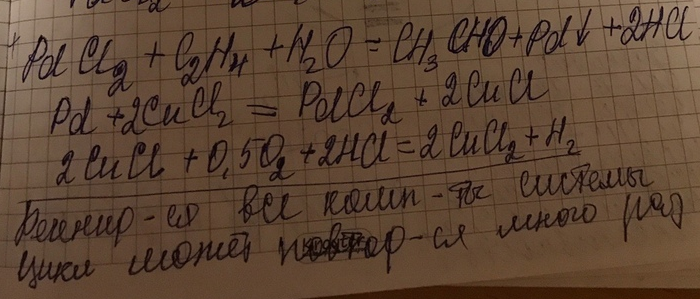 PdCl₂ + C₂H₄ + H₂O = CH₃CHO + Pd↓ + 2HCl
Pd + 2CuCl₂ = PdCl₂ + 2CuCl
2CuCl + 0,5O₂ + 2HCl = 2CuCl₂ + H₂
Регенир-ся все комп-ты системы
Цикл может повтор-ся много раз